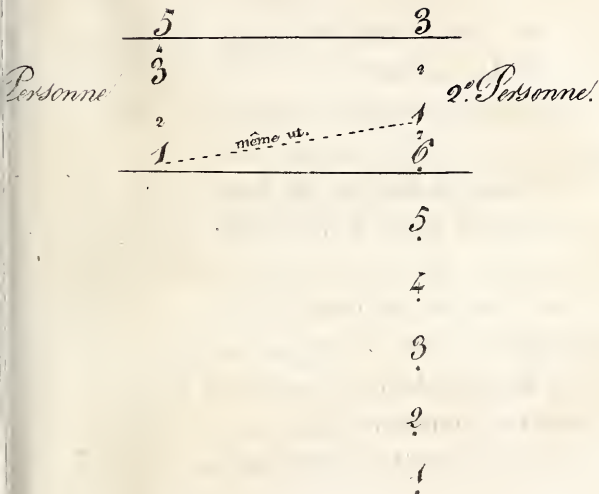 5 3
4
3 2
Personne 2e. Personne.
2 1
même ut.
1 7
6
5
4
3
2
1